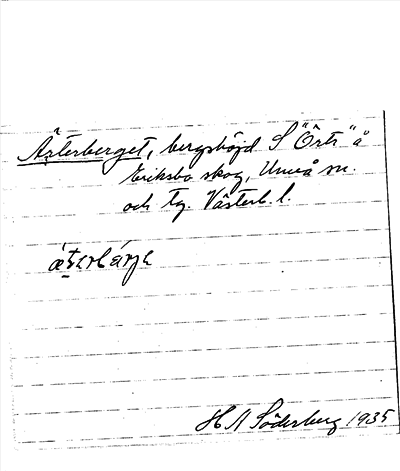 Ästerberget, bergshöjd S "Örtr" å
Eriksbo skog, Umeå sn.
och tg. Västerb. l.
H A Söderberg 1935